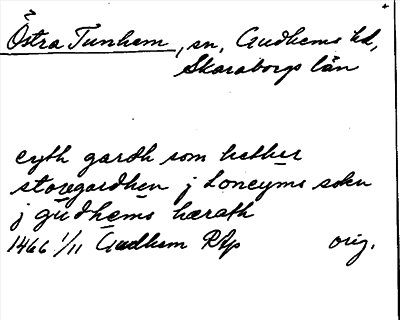 Östra Tunhem, sn, Gudhems hd,
Skaraborgs län
eyth gardh som hether
storegardhen j Loneyms sokn
j gudhems hærath
1466 1/11 Gudhem RAp orig.